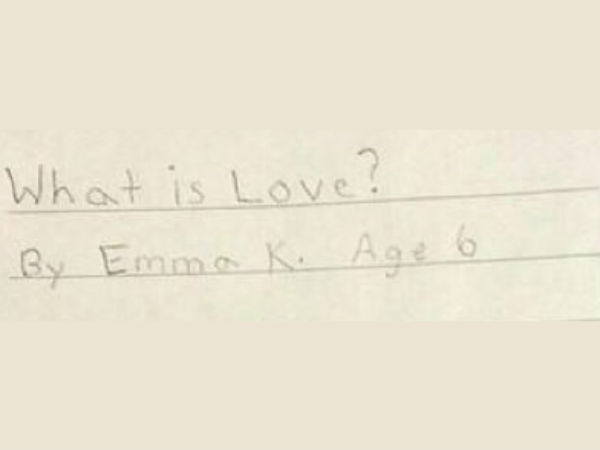 What is Love?
By Emma K. Age 6